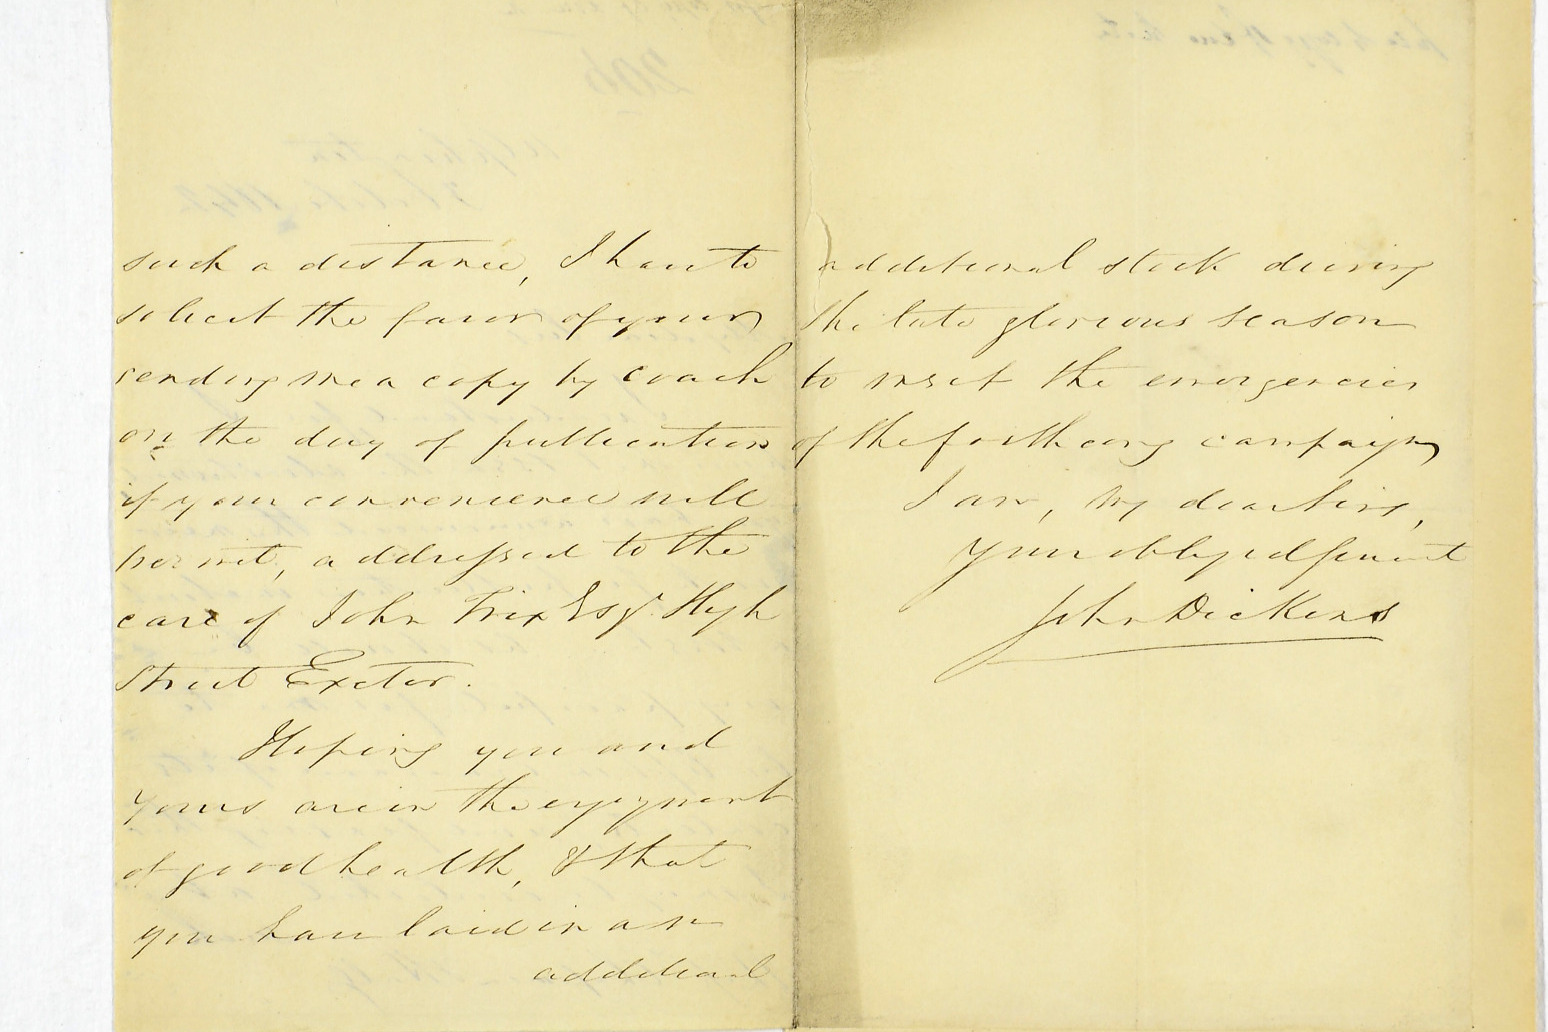 such a distance, I have to
solicit the favor of your
sending me a copy by coach
on the day of publication
if your convenience will
permit, addressed to the
care of John Trix Esqr. High
Street Exeter.
Hoping you and
yours are in the enjoyment
of good health, & that
you have laid in an
additional
additional stock during
the late glorious season
to meet the emergencies
of the forthcoming campaign
I am, my dear Sirs,
Your obliged Servant
John Dickens